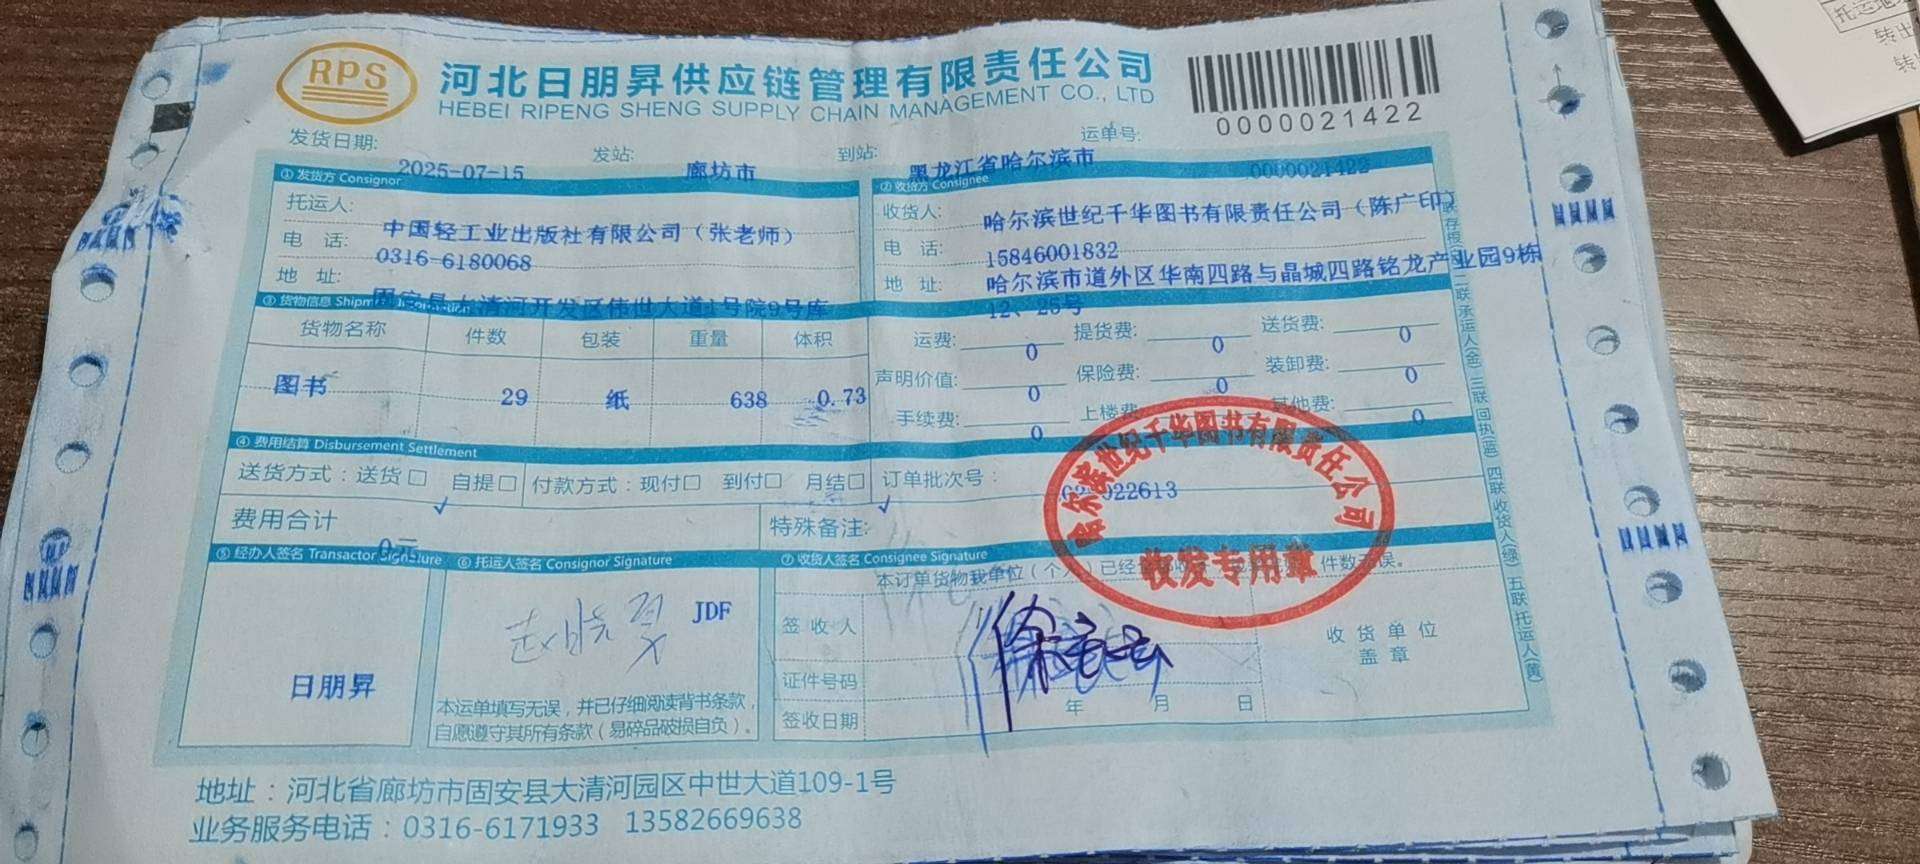 RPS
河北日朋昇供应链管理有限责任公司
HEBEI RIPENG SHENG SUPPLY CHAIN MANAGEMENT CO., LTD
0000021422
发货日期: 2025-07-15 发站: 廊坊市 到站: 黑龙江省哈尔滨市 运单号: 0000021422
① 发货方 Consignor
托运人: 中国轻工业出版社有限公司（张老师）
电 话: 0316-6180068
地 址: 固安县大清河开发区伟世大道1号院9号库
② 收货方 Consignee
收货人: 哈尔滨世纪千华图书有限责任公司（陈广印）
电 话: 15846001832
地 址: 哈尔滨市道外区华南四路与晶城四路铭龙产业园9栋
12、25号
③ 货物信息
货物名称 件数 包装 重量 体积
图书 29 纸 638 0.73
运费: 0 提货费: 0 送货费: 0
声明价值: 0 保险费: 0 装卸费: 0
手续费: 0 上楼费 其他费: 0
④ 费用结算 Disbursement Settlement
送货方式：送货□ 自提□ 付款方式：现付□ 到付□ 月结□ 订单批次号：
022613
费用合计 特殊备注:
⑤ 经办人签名 Transactor Signature
日朋昇
⑥ 托运人签名 Consignor Signature
JDF
本运单填写无误，并已仔细阅读背书条款，
自愿遵守其所有条款（易碎品破损自负）。
⑦ 收货人签名 Consignee Signature
本订单货物我单位（个人）已经 件数无误。
签收人
证件号码
签收日期 年 月 日
收货单位
盖章
哈尔滨世纪千华图书有限责任公司
收发专用章
二联承运人(金) 三联回执(蓝) 四联收货人(绿) 五联托运人(黄)
地址：河北省廊坊市固安县大清河园区中世大道109-1号
业务服务电话：0316-6171933 13582669638